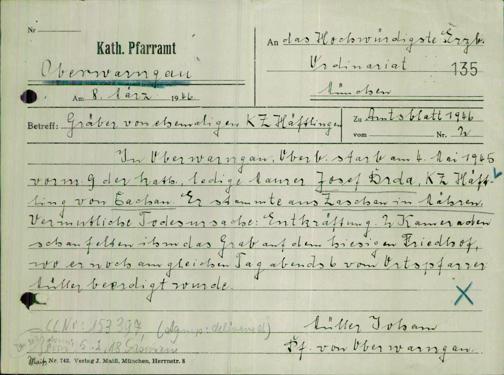 Nr
Kath. Pfarramt
Oberwarngau
Am 8. März 1946
An das Hochwürdigste Erzb.
Ordinariat 135
München
Betreff: Gräber von ehemaligen KZ Häftlingen
Zu Amtsblatt 1946
vom Nr. 2
In Oberwarngau, Oberb. starb am 4. Mai 1945
vorm 9 der kath. ledige Maurer Josef Brda, KZ Häft-
ling von Dachau. Er stammte aus Zaschau in Mähren.
Vermutliche Todesursache: Entkräftung. 2 Kameraden
schaufelten ihm das Grab auf dem hiesigen Friedhof,
wo er noch am gleichen Tag abends 6 vom Ortspfarrer
Müller beerdigt wurde.
Müller Johann
Pf. von Oberwarngau.
CC Nr: 153397
Nr. 742. Verlag J. Maiß, München, Herrnstr. 8